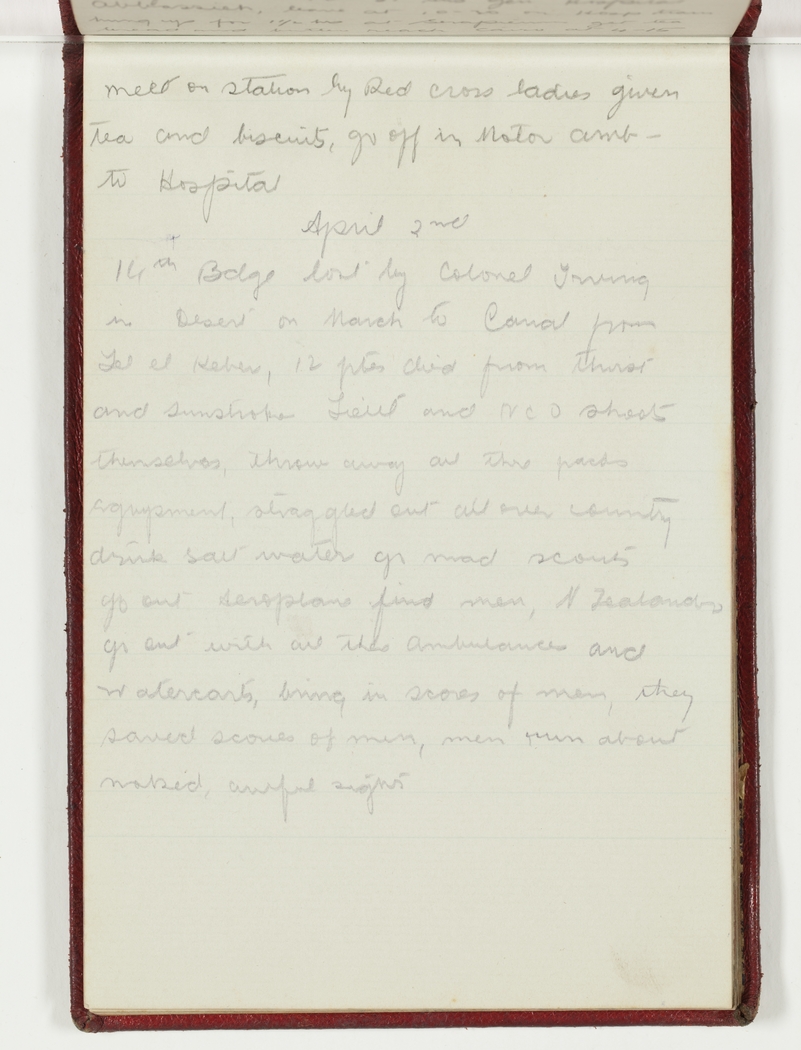 meet on station by Red cross ladies given
tea and biscuits, go off in Motor amb-
to Hospital
April 2nd
14th Bdge lost by Colonel Irving
in Desert on March to Canal from
Tel el Keber, 12 ptes died from thirst
and sunstroke Lieut and NCO shoots
themselves, throw away all the packs
equipment, straggled out all over country
drink salt water go mad scouts
go out Aeroplans find men, N Zealanders
go out with all the Ambulances and
watercarts, bring in scores of men, they
saved scores of men, men run about
naked, awful sight